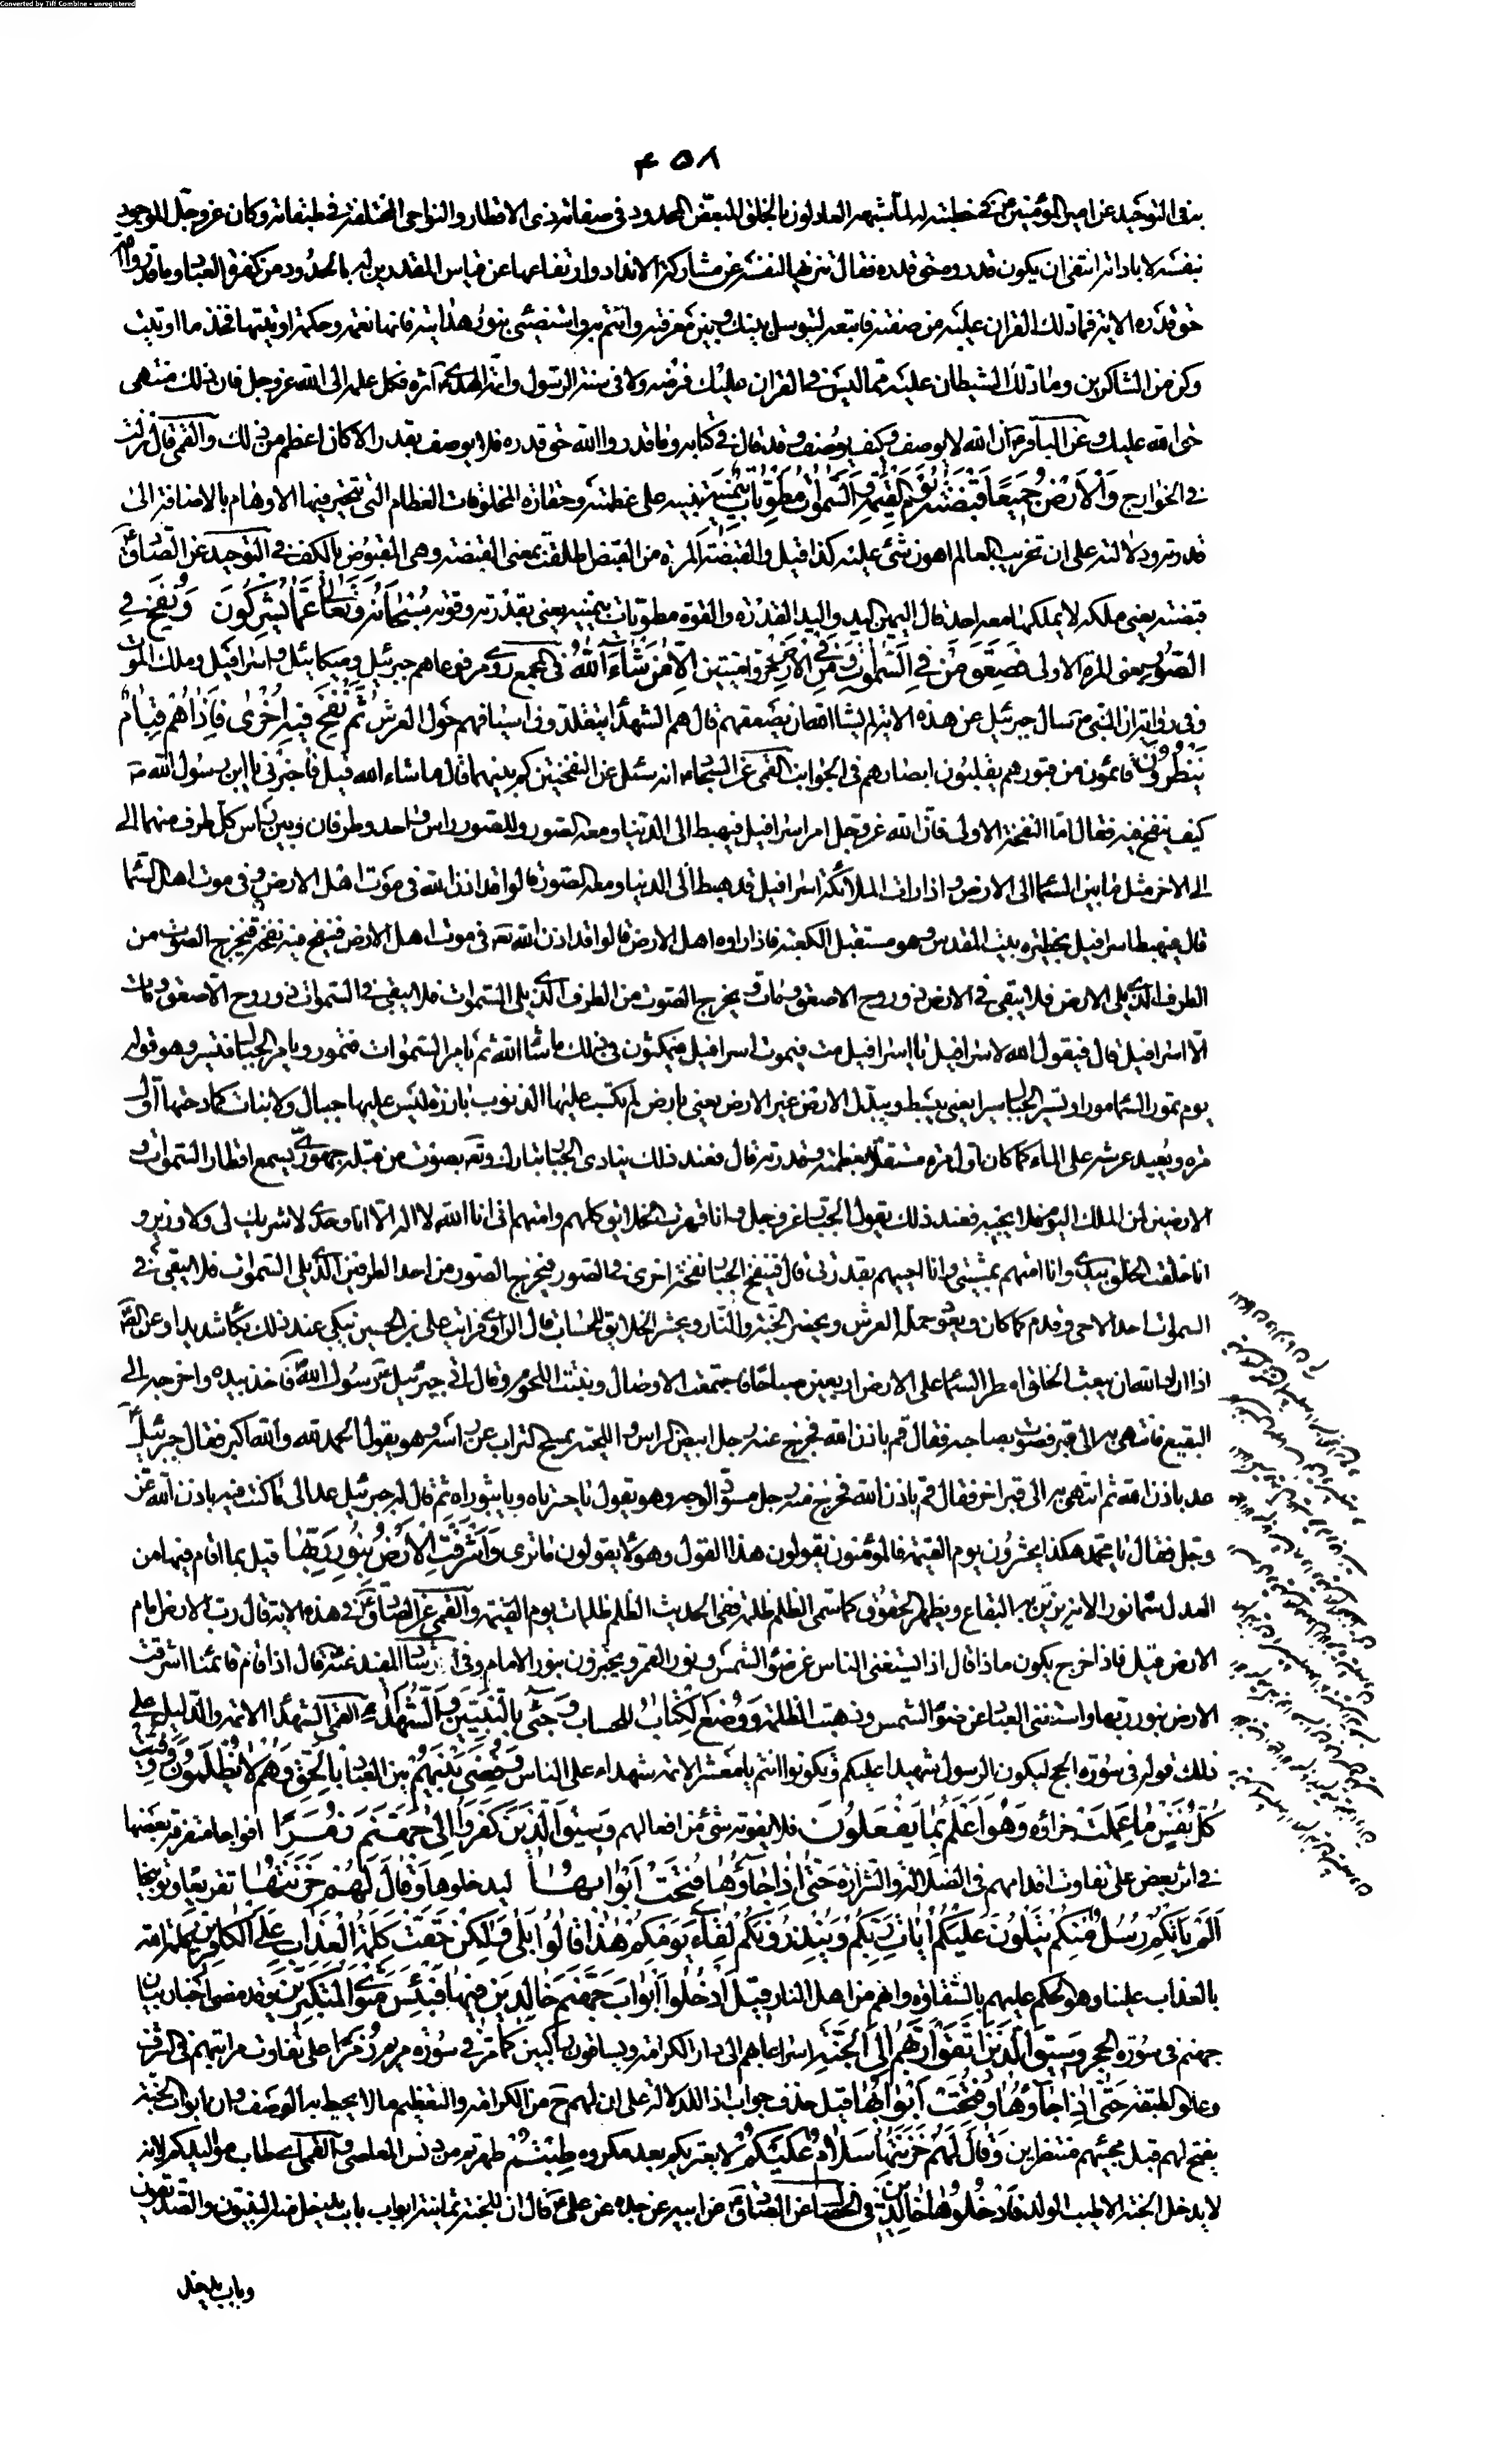 Converted by Tiff Combine - unregistered
۴۵۸
في التوحيد عن امير المؤمنين في خطبته له لما شبهه العادلون بالخلق المبعض المحدود في صفاته ذي الاقطار والنواحي المختلفة في طبقاته وكان عز وجل الموجود
بنفسه لا باداته انتفى ان يكون قدروه حق قدره فقال تنزيها لنفسه عن مشاركة الانداد وارتفاعها عن قياس المقدرين له بالحدود من كفرة العباد وما قدروا الله
حق قدره الاية فما دلك القران عليه من صفته فاتبعه لتوسل بينك وبين معرفته وائتم به واستضئ بنور هدايته فانها نعمة وحكمة اوتيتها فخذ ما اوتيت
وكن من الشاكرين وما دلك الشيطان عليه مما ليس في القران عليك فرضه ولا في سنة الرسول وائمة الهدى اثره فكل علمه الى الله عز وجل فان ذلك منتهى
حق الله عليك وعن الباقر ان الله لا يوصف وكيف يوصف وقد قال في كتابه وما قدروا الله حق قدره فلا يوصف بقدر الا كان اعظم من ذلك والقمي قال نزلت
في الخوارج وَالْاَرْضُ جَمِيعًا قَبْضَتُهُ يَوْمَ الْقِيٰمَةِ وَالسَّمٰوٰتُ مَطْوِيَّاتٌ بِيَمِينِهِ تنبيه على عظمته وحقارة المخلوقات العظام التي تتحير فيها الاوهام بالاضافة الى
قدرته ودلالته على ان تخريب العالم اهون شئ عليه كذا قيل والقبضة المرة من القبض اطلقت بمعنى القبضة وهي المقبوض بالكف في التوحيد عن الصادق
قبضته يعني ملكه لا يملكها معه احد قال اليمين اليد واليد القدرة والقوة مطويات بيمينه يعني بقدرته وقوته سُبْحَانَهُ وَتَعَالٰى عَمَّا يُشْرِكُونَ وَنُفِخَ فِي
الصُّورِ يعني المرة الاولى فَصَعِقَ مَنْ فِي السَّمٰوٰتِ وَمَنْ فِي الْاَرْضِ خروا ميتين اِلَّا مَنْ شَاءَ اللّٰهُ في المجمع روى مرفوعا هم جبرئيل وميكائيل واسرافيل وملك الموت
وفي رواية ان النبي سال جبرئيل عن هذه الاية لم يشا الله ان يصعقهم قال هم الشهداء متقلدون اسيافهم حول العرش ثُمَّ نُفِخَ فِيهِ اُخْرٰى فَاِذَا هُمْ قِيَامٌ
يَنْظُرُونَ قائمون من قبورهم يقلبون ابصارهم في الجوانب القمي عن السجاد انه سئل عن النفختين كم بينهما قال ما شاء الله قيل فاخبرني يا ابن رسول الله
كيف ينفخ فيه فقال اما النفخة الاولى فان الله عز وجل امر اسرافيل فيهبط الى الدنيا ومعه الصور وللصور راس واحد وطرفان وبين راس كل طرف منهما الى
الى الاخر مثل ما بين السماء الى الارض اذا رات الملائكة اسرافيل قد هبط الى الدنيا ومعه الصور قالوا قد اذن الله في موت اهل الارض وفي موت اهل السماء
قال فيهبط اسرافيل بحظيرة بيت المقدس وهو مستقبل الكعبة فاذا راوه اهل الارض قالوا قد اذن الله تع في موت اهل الارض فينفخ فيه نفخة فيخرج الصوت من
الطرف الذي يلي الارض فلا يبقى في الارض ذو روح الا صعق ومات ويخرج الصوت من الطرف الذي يلي السموات فلا يبقى في السموات ذو روح الا صعق ومات
الا اسرافيل قال فيقول الله لاسرافيل يا اسرافيل مت فيموت اسرافيل فيمكثون في ذلك ما شاء الله ثم يامر السموات فتمور ويامر الجبال فتسير وهو قوله
يوم تمور السماء مورا وتسير الجبال سيرا يعني تبسط ويبدل الارض غير الارض يعني بارض لم يكتسب عليها الذنوب بارزة ليس عليها جبال ولا نبات كما دحيها اول
مرة ويعيد عرشه على الماء كما كان اول مرة مستقلا بعظمته وقدرته قال فعند ذلك ينادي الجبار تبارك وتع بصوت من قبله جهوري يسمع اقطار السموات و
الارضين لمن الملك اليوم فلا يجيبه فعند ذلك يقول الجبار عز وجل وانا قهرت الخلائق كلهم وامتهم اني انا الله لا اله الا انا وحدي لا شريك لي ولا وزير و
انا خلقت الخلق بيدي وانا امتهم بمشيتي وانا احييهم بقدرتي قال فينفخ الجبار نفخة اخرى في الصور فيخرج الصور من احد الطرفين الذي يلي السموات فلا يبقى في
السموات احد الا حي وقام كما كان ويعود حملة العرش ويحضر الجنة والنار ويحشر الخلايق للحساب قال الراوي فرايت علي بن الحسين يبكي عند ذلك بكاء شديدا وعن الصادق
اذا اراد الله ان يبعث الخلق امطر السماء على الارض اربعين صباحا فاجتمعت الاوصال ونبتت اللحوم وقال اتى جبرئيل رسول الله فاخذ بيده واخرجه الى
البقيع فانتهى به الى قبر فصوت بصاحبه فقال قم باذن الله فخرج منه رجل ابيض الراس واللحية يمسح التراب عن راسه وهو يقول الحمد لله والله اكبر فقال جبرئيل
عد باذن الله ثم انتهى به الى قبر اخر فقال قم باذن الله فخرج منه رجل مسود الوجه وهو يقول يا حسرتاه ويا ثبوراه ثم قال له جبرئيل عد الى ما كنت فيه باذن الله عز
وجل فقال يا محمد هكذا يحشرون يوم القيمة فالمؤمنون يقولون هذا القول وهؤلاء يقولون ما ترى وَاَشْرَقَتِ الْاَرْضُ بِنُورِ رَبِّهَا قيل بما اقام فيها من
العدل سماه نورا لانه يزين به البقاع ويظهر الحقوق كما سمى الظلم ظلمة ففي الحديث الظلم ظلمات يوم القيمة والقمي عن الصادق في هذه الاية قال رب الارض امام
الارض قيل فاذا خرج يكون ماذا قال اذا يستغني الناس عن ضوء الشمس ونور القمر ويجتزون بنور الامام وفي ارشاد المفيد عنه قال اذا قام قائمنا اشرقت
الارض بنور ربها واستغنى العباد عن ضوء الشمس وذهبت الظلمة وَوُضِعَ الْكِتَابُ للحساب وَجِيءَ بِالنَّبِيِّينَ وَالشُّهَدَاءِ القمي الشهداء الائمة والدليل على
ذلك قوله في سورة الحج ليكون الرسول شهيدا عليكم وتكونوا انتم يا معشر الائمة شهداء على الناس وَقُضِيَ بَيْنَهُمْ بين العباد بِالْحَقِّ وَهُمْ لَا يُظْلَمُونَ وَوُفِّيَتْ
كُلُّ نَفْسٍ مَا عَمِلَتْ جزاؤه وَهُوَ اَعْلَمُ بِمَا يَفْعَلُونَ فلا يفوته شئ من افعالهم وَسِيقَ الَّذِينَ كَفَرُوا اِلٰى جَهَنَّمَ زُمَرًا افواجا متفرقة بعضها
في اثر بعض على تفاوت اقدامهم في الضلالة والشرارة حَتّٰى اِذَا جَاؤُهَا فُتِحَتْ اَبْوَابُهَا ليدخلوها وَقَالَ لَهُمْ خَزَنَتُهَا تقريعا وتوبيخا
اَلَمْ يَاْتِكُمْ رُسُلٌ مِنْكُمْ يَتْلُونَ عَلَيْكُمْ اٰيَاتِ رَبِّكُمْ وَيُنْذِرُونَكُمْ لِقَاءَ يَوْمِكُمْ هٰذَا قَالُوا بَلٰى وَلٰكِنْ حَقَّتْ كَلِمَةُ الْعَذَابِ عَلَى الْكَافِرِينَ كلمة الله
بالعذاب علينا وهو الحكم عليهم بالشقاوة وانهم من اهل النار قِيلَ ادْخُلُوا اَبْوَابَ جَهَنَّمَ خَالِدِينَ فِيهَا فَبِئْسَ مَثْوَى الْمُتَكَبِّرِينَ وقد مضى اخبار بيان
جهنم في سورة الحجر وَسِيقَ الَّذِينَ اتَّقَوْا رَبَّهُمْ اِلَى الْجَنَّةِ اسراعا بهم الى دار الكرامة ويساقون راكبين كما مر في سورة مريم زُمَرًا على تفاوت مراتبهم في الشرف
وعلو الطبقة حَتّٰى اِذَا جَاؤُهَا وَفُتِحَتْ اَبْوَابُهَا قيل حذف جواب اذا للدلالة على ان لهم ح من الكرامة والتعظيم ما لا يحيط به الوصف وان ابواب الجنة
يفتح لهم قبل مجيئهم منتظرين وَقَالَ لَهُمْ خَزَنَتُهَا سَلَامٌ عَلَيْكُمْ لا يعتريكم بعد مكروه طِبْتُمْ طهرتم من دنس المعاصي والقمي اي طاب مواليدكم لانه
لا يدخل الجنة الا طيب المولد فَادْخُلُوهَا خَالِدِينَ في الخصال عن الصادق عن ابيه عن جده عن علي قال ان للجنة ثمانية ابواب باب يدخل منه النبيون والصديقون
وباب يدخل